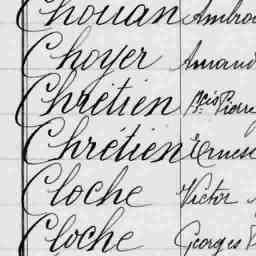 Chouan Ambro
Choyer Amand
Chrétien Pierre
Chrétien Ernes
Cloche Victor
Cloche Georges